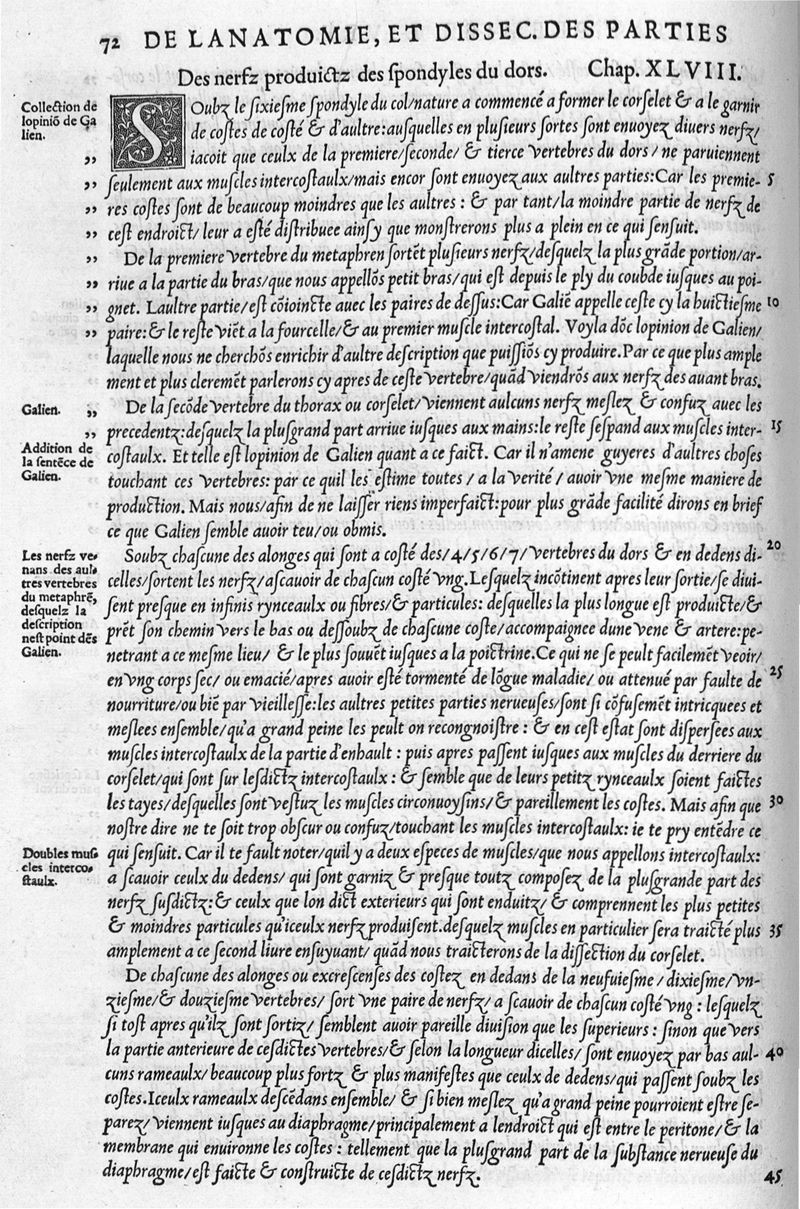 72 DE LANATOMIE, ET DISSEC. DES PARTIES
Des nerfz produictz des spondyles du dors. Chap. XLVIII.
Collection de
lopiniō de Ga
lien.
SOubz le sixiesme spondyle du col/nature a commencé a former le corselet & a le garnir
de costes de costé & d'aultre:ausquelles en plusieurs sortes sont enuoyez diuers nerfz/
,, iacoit que ceulx de la premiere/seconde/ & tierce vertebres du dors / ne paruiennent
,, seulement aux muscles intercostaulx/mais encor sont enuoyez aux aultres parties:Car les premie- 5
,, res costes sont de beaucoup moindres que les aultres : & par tant/la moindre partie de nerfz de
,, cest endroict/ leur a esté distribuee ainsy que monstrerons plus a plein en ce qui sensuit.
,, De la premiere vertebre du metaphren sortēt plusieurs nerfz/desquelz la plus grāde portion/ar-
,, riue a la partie du bras/que nous appellōs petit bras/qui est depuis le ply du coubde iusques au poi-
,, gnet. Laultre partie/est cōioincte auec les paires de dessus:Car Galiē appelle ceste cy la huictiesme 10
,, paire:& le reste viēt a la fourcelle/& au premier muscle intercostal. Voyla dōc lopinion de Galien/
laquelle nous ne cherchōs enrichir d'aultre description que puissiōs cy produire.Par ce que plus ample
ment et plus cleremēt parlerons cy apres de ceste vertebre/quād viendrōs aux nerfz des auant bras.
Galien. ,, De la secōde vertebre du thorax ou corselet/viennent aulcuns nerfz meslez & confuz auec les
,, precedentz:desquelz la plusgrand part arriue iusques aux mains:le reste sespand aux muscles inter- 15
Addition de
la sentēce de
Galien.
costaulx. Et telle est lopinion de Galien quant a ce faict. Car il n'amene guyeres d'aultres choses
touchant ces vertebres: par ce quil les estime toutes / a la verité / auoir vne mesme maniere de
production. Mais nous/afin de ne laisser riens imperfaict:pour plus grāde facilité dirons en brief
ce que Galien semble auoir teu/ou obmis.
Les nerfz ve-
nans des aul
tres vertebres
du metaphrē,
desquelz la
description
nest point dēs
Galien.
Soubz chascune des alonges qui sont a costé des/4/5/6/7/ vertebres du dors & en dedens di- 20
celles/sortent les nerfz/ascauoir de chascun costé vng.Lesquelz incōtinent apres leur sortie/se diui-
sent presque en infinis rynceaulx ou fibres/& particules: desquelles la plus longue est produicte/&
prēt son chemin vers le bas ou dessoubz de chascune coste/accompaignee dune vene & artere:pe-
netrant a ce mesme lieu/ & le plus souuēt iusques a la poictrine.Ce qui ne se peult facilemēt veoir/
en vng corps sec/ ou emacié/apres auoir esté tormenté de lōgue maladie/ ou attenué par faulte de 25
nourriture/ou biē par vieillesse:les aultres petites parties nerueuses/sont si cōfusemēt intricquees et
meslees ensemble/qu'a grand peine les peult on recongnoistre : & en cest estat sont dispersees aux
muscles intercostaulx de la partie d'enhault : puis apres passent iusques aux muscles du derriere du
corselet/qui sont sur lesdictz intercostaulx : & semble que de leurs petitz rynceaulx soient faictes
les tayes/desquelles sont vestuz les muscles circonuoysins/& pareillement les costes. Mais afin que 30
nostre dire ne te soit trop obscur ou confuz/touchant les muscles intercostaulx: ie te pry entēdre ce
Doubles mus
cles interco-
staulx.
qui sensuit. Car il te fault noter/quil y a deux especes de muscles/que nous appellons intercostaulx:
a scauoir ceulx du dedens/ qui sont garniz & presque toutz composez de la plusgrande part des
nerfz susdictz:& ceulx que lon dict exterieurs qui sont enduitz/ & comprennent les plus petites
& moindres particules qu'iceulx nerfz produisent.desquelz muscles en particulier sera traicté plus 35
amplement a ce second liure ensuyuant/ quād nous traicterons de la dissection du corselet.
De chascune des alonges ou excrescenses des costez en dedans de la neufuiesme / dixiesme/vn-
ziesme/& douziesme vertebres/ sort vne paire de nerfz/ a scauoir de chascun costé vng : lesquelz
si tost apres qu'ilz sont sortiz/ semblent auoir pareille diuision que les superieurs : sinon que vers
la partie anterieure de cesdictes vertebres/& selon la longueur dicelles/ sont enuoyez par bas aul- 40
cuns rameaulx/ beaucoup plus fortz & plus manifestes que ceulx de dedens/qui passent soubz les
costes.Iceulx rameaulx descēdans ensemble/ & si bien meslez qu'a grand peine pourroient estre se-
parez/ viennent iusques au diaphragme/principalement a lendroict qui est entre le peritone/ & la
membrane qui enuironne les costes : tellement que la plusgrand part de la substance nerueuse du
diaphragme/est faicte & construicte de cesdictz nerfz. 45